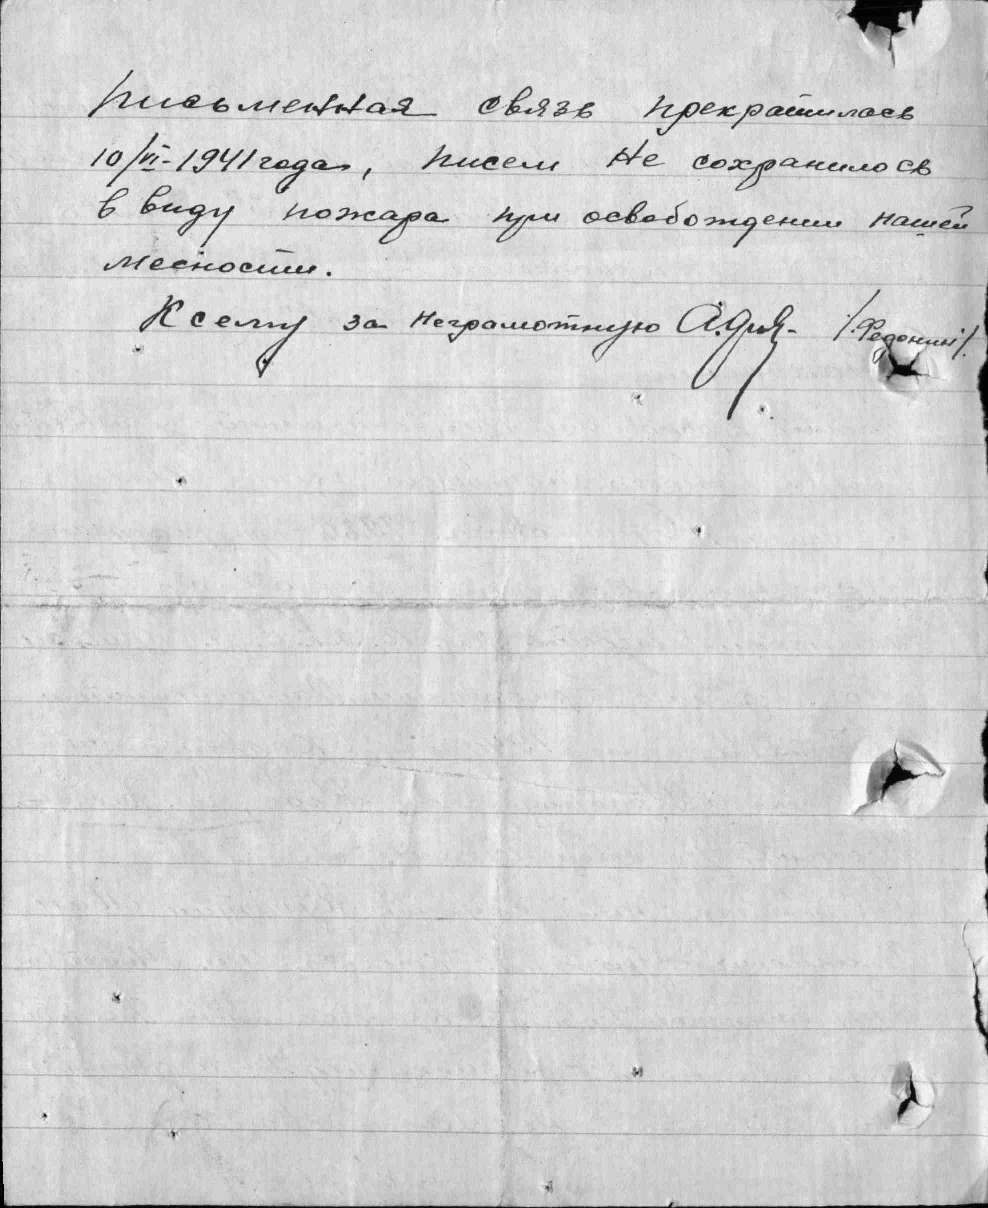 письменная связь прекратилась
10/VI-1941 года, писем не сохранилось
в виду пожара при освобождении нашей
месности.
К сему за неграмотную /Федонин/.